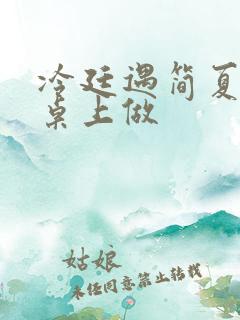 冷廷遇简夏
桌上做
姑娘
未经同意禁止转载